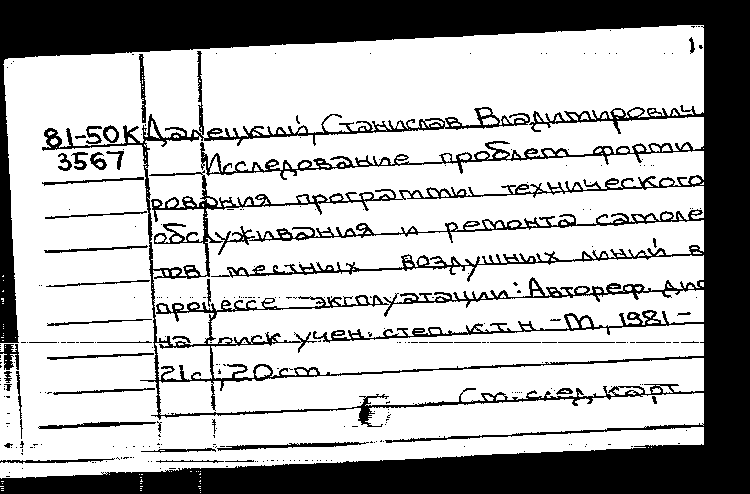 1.
81-50К Далецкий, Станислав Владимирович.
3567 Исследование проблем форми-
рования программы технического
обслуживания и ремонта самоле
тов местных воздушных линий в
процессе эксплуатации: Автореф. дис
на соиск. учен. степ. к.т.н. -М., 1981.-
21с.; 20см.
См. след. карт